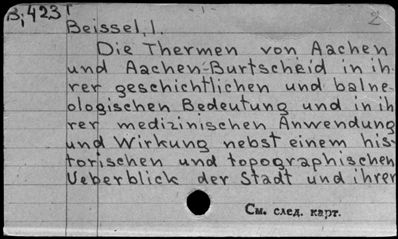 B,423
- 1 -
2
Beissel, I.
Die Thermen von Aachen
und Aachen-Burtscheid in ih-
rer geschichtlichen und balne-
ologischen Bedeutung und in ih
rer medizinischen Anwendung
und Wirkung nebst einem his-
torischen und topographischen
Ueberblick der Stadt und ihrer
См. след. карт.